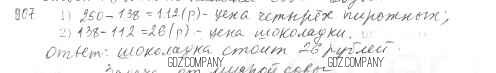 907 1) 250-138=112(р)-цена четырёх пирожных;
2) 138-112=26(р)-цена шоколадки.
Ответ: шоколадка стоит 26 рублей.
GDZ.COM